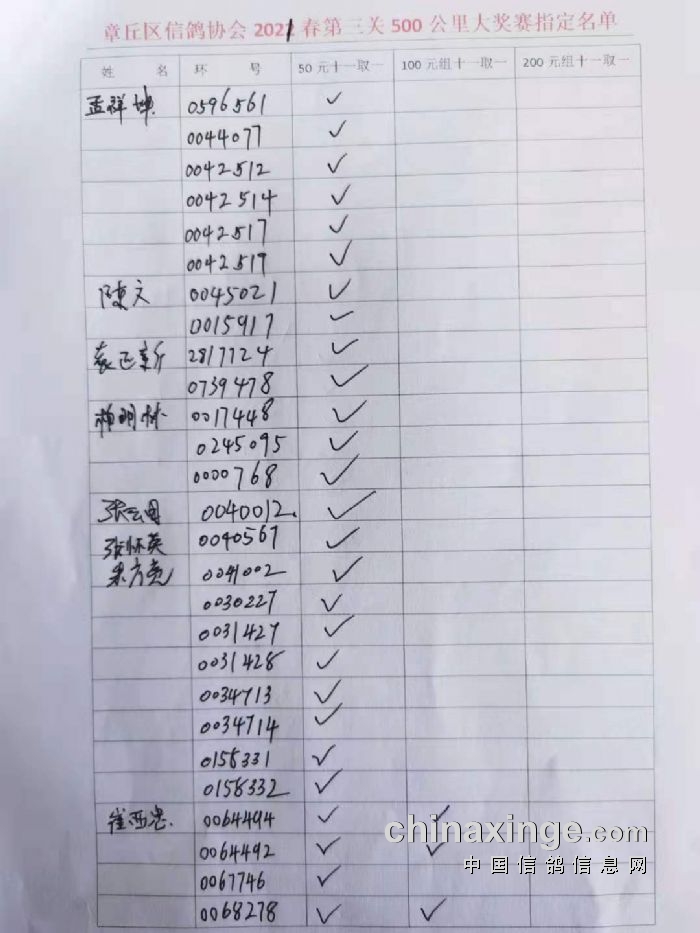 章丘区信鸽协会 2021 春第三关 500 公里大奖赛指定名单
姓 名 环 号 50 元十一取一 100 元组十一取一 200 元组十一取一
孟祥坤 0596561 ✓
0044077 ✓
0042512 ✓
0042514 ✓
0042517 ✓
0042519 ✓
陈文 0045021 ✓
0015917 ✓
袁正新 2817724 ✓
0739478 ✓
柳明林 0017448 ✓
0245095 ✓
0000768 ✓
张云国 0040012 ✓
张怀英 0040567 ✓
朱方亮 0041002 ✓
0030227 ✓
0031427 ✓
0031428 ✓
0034713 ✓
0034714 ✓
0158331 ✓
0158332 ✓
崔西忠 0064494 ✓ ✓
0064492 ✓ ✓
0067746 ✓
0068278 ✓ ✓
chinaxinge.com
中国信鸽信息网